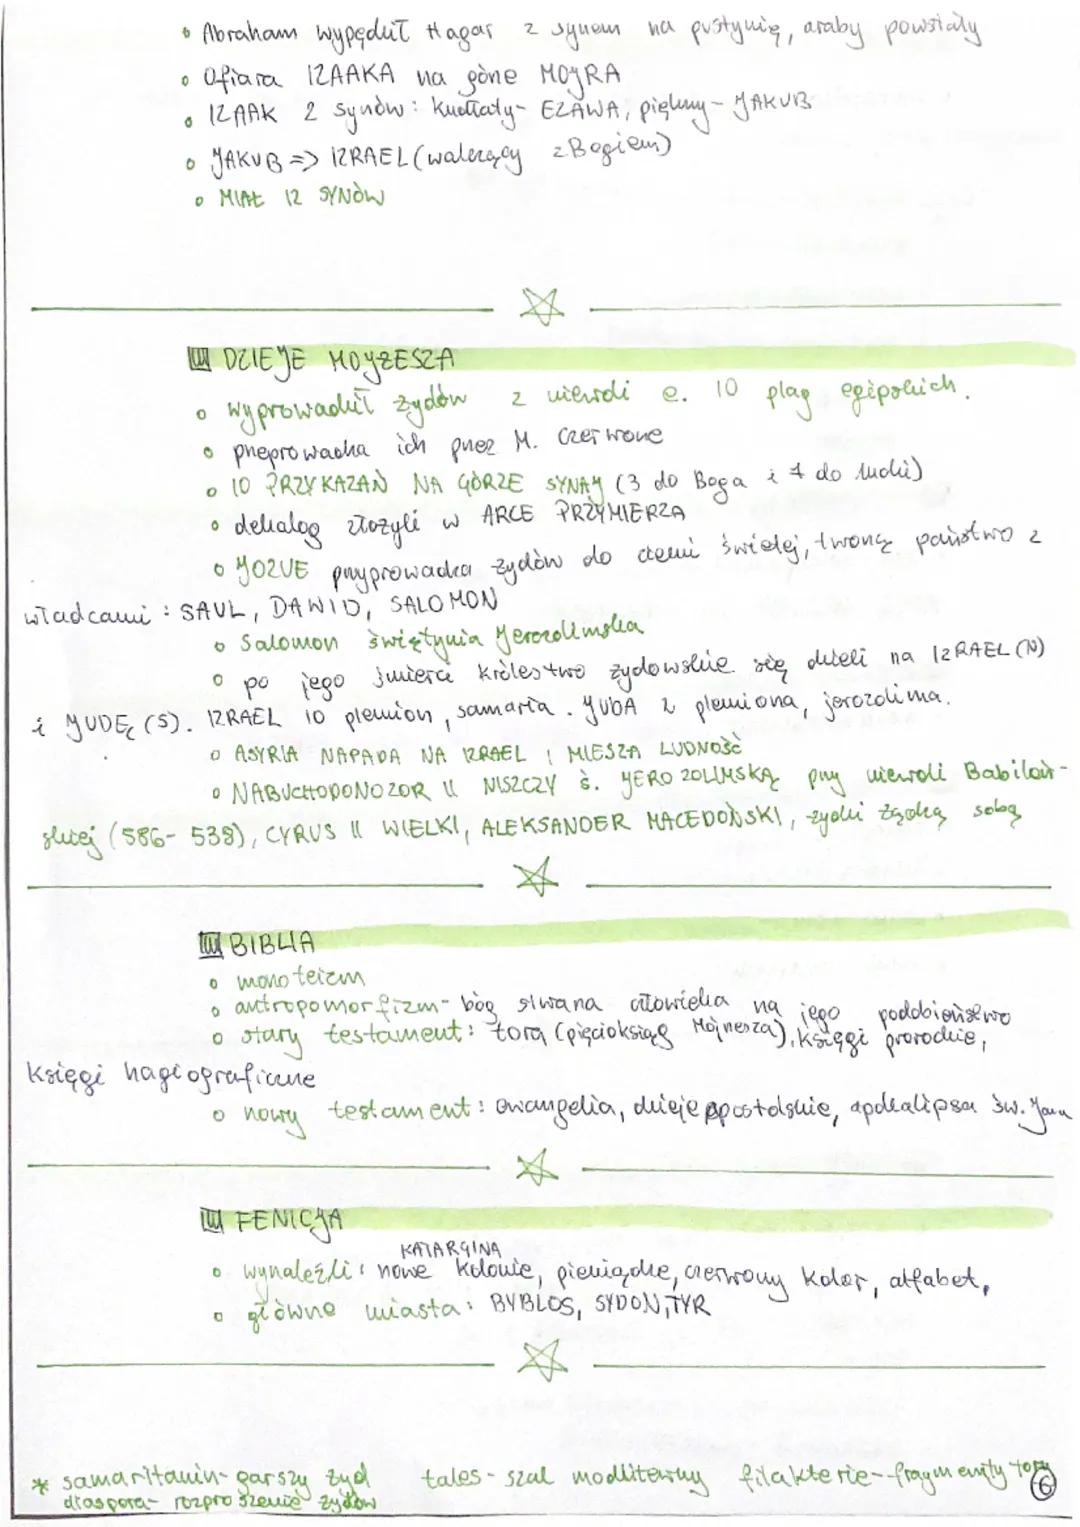 • Abraham wypędził Hagar z synem na pustynię, araby powstały
• Ofiara IZAAKA na górze MOJRA
• IZAAK 2 synów: kudłaty- EZAWA, piękny- JAKUB
• JAKUB => IZRAEL (walczący z Bogiem)
• MIAŁ 12 SYNÓW
DZIEJE MOJŻESZA
• wyprowadził żydów z niewoli e. 10 plag egipskich.
• przeprowadza ich przez M. Czerwone
• 10 PRZYKAZAŃ NA GÓRZE SYNAJ (3 do Boga i 7 do ludzi)
• dekalog złożyli w ARCE PRZYMIERZA
• JOZUE przyprowadza żydów do ziemi świętej, tworzą państwo z
władcami: SAUL, DAWID, SALOMON
• Salomon świętynia Jerozolimska
• po jego śmierci królestwo żydowskie się dzieli na IZRAEL (N)
i JUDĘ (S). IZRAEL 10 plemion, samaria. JUDA 2 plemiona, jerozolima.
• ASYRIA NAPADA NA IZRAEL i MIESZA LUDNOŚĆ
• NABUCHODONOZOR II NISZCZY Ś. JEROZOLIMSKĄ przy niewoli Babiloń-
skiej (586-538), CYRUS II WIELKI, ALEKSANDER MACEDOŃSKI, żydzi rządzą sobą
BIBLIA
• monoteizm
• antropomorfizm- bóg stwarza człowieka na jego podobieństwo
• stary testament: tora (pięcioksiąg Mojżesza), księgi prorockie,
księgi hagiograficzne
• nowy testament: ewangelia, dzieje apostolskie, apokalipsa św. Jana
FENICJA
KATARGINA
• wynaleźli: nowe kolonie, pieniądze, czerwony kolor, alfabet,
• główne miasta: BYBLOS, SYDON, TYR
* samaritanin- gorszy żyd tales- szal modlitewny filakterie- fragmenty tory
diaspora- rozproszenie żydów
6